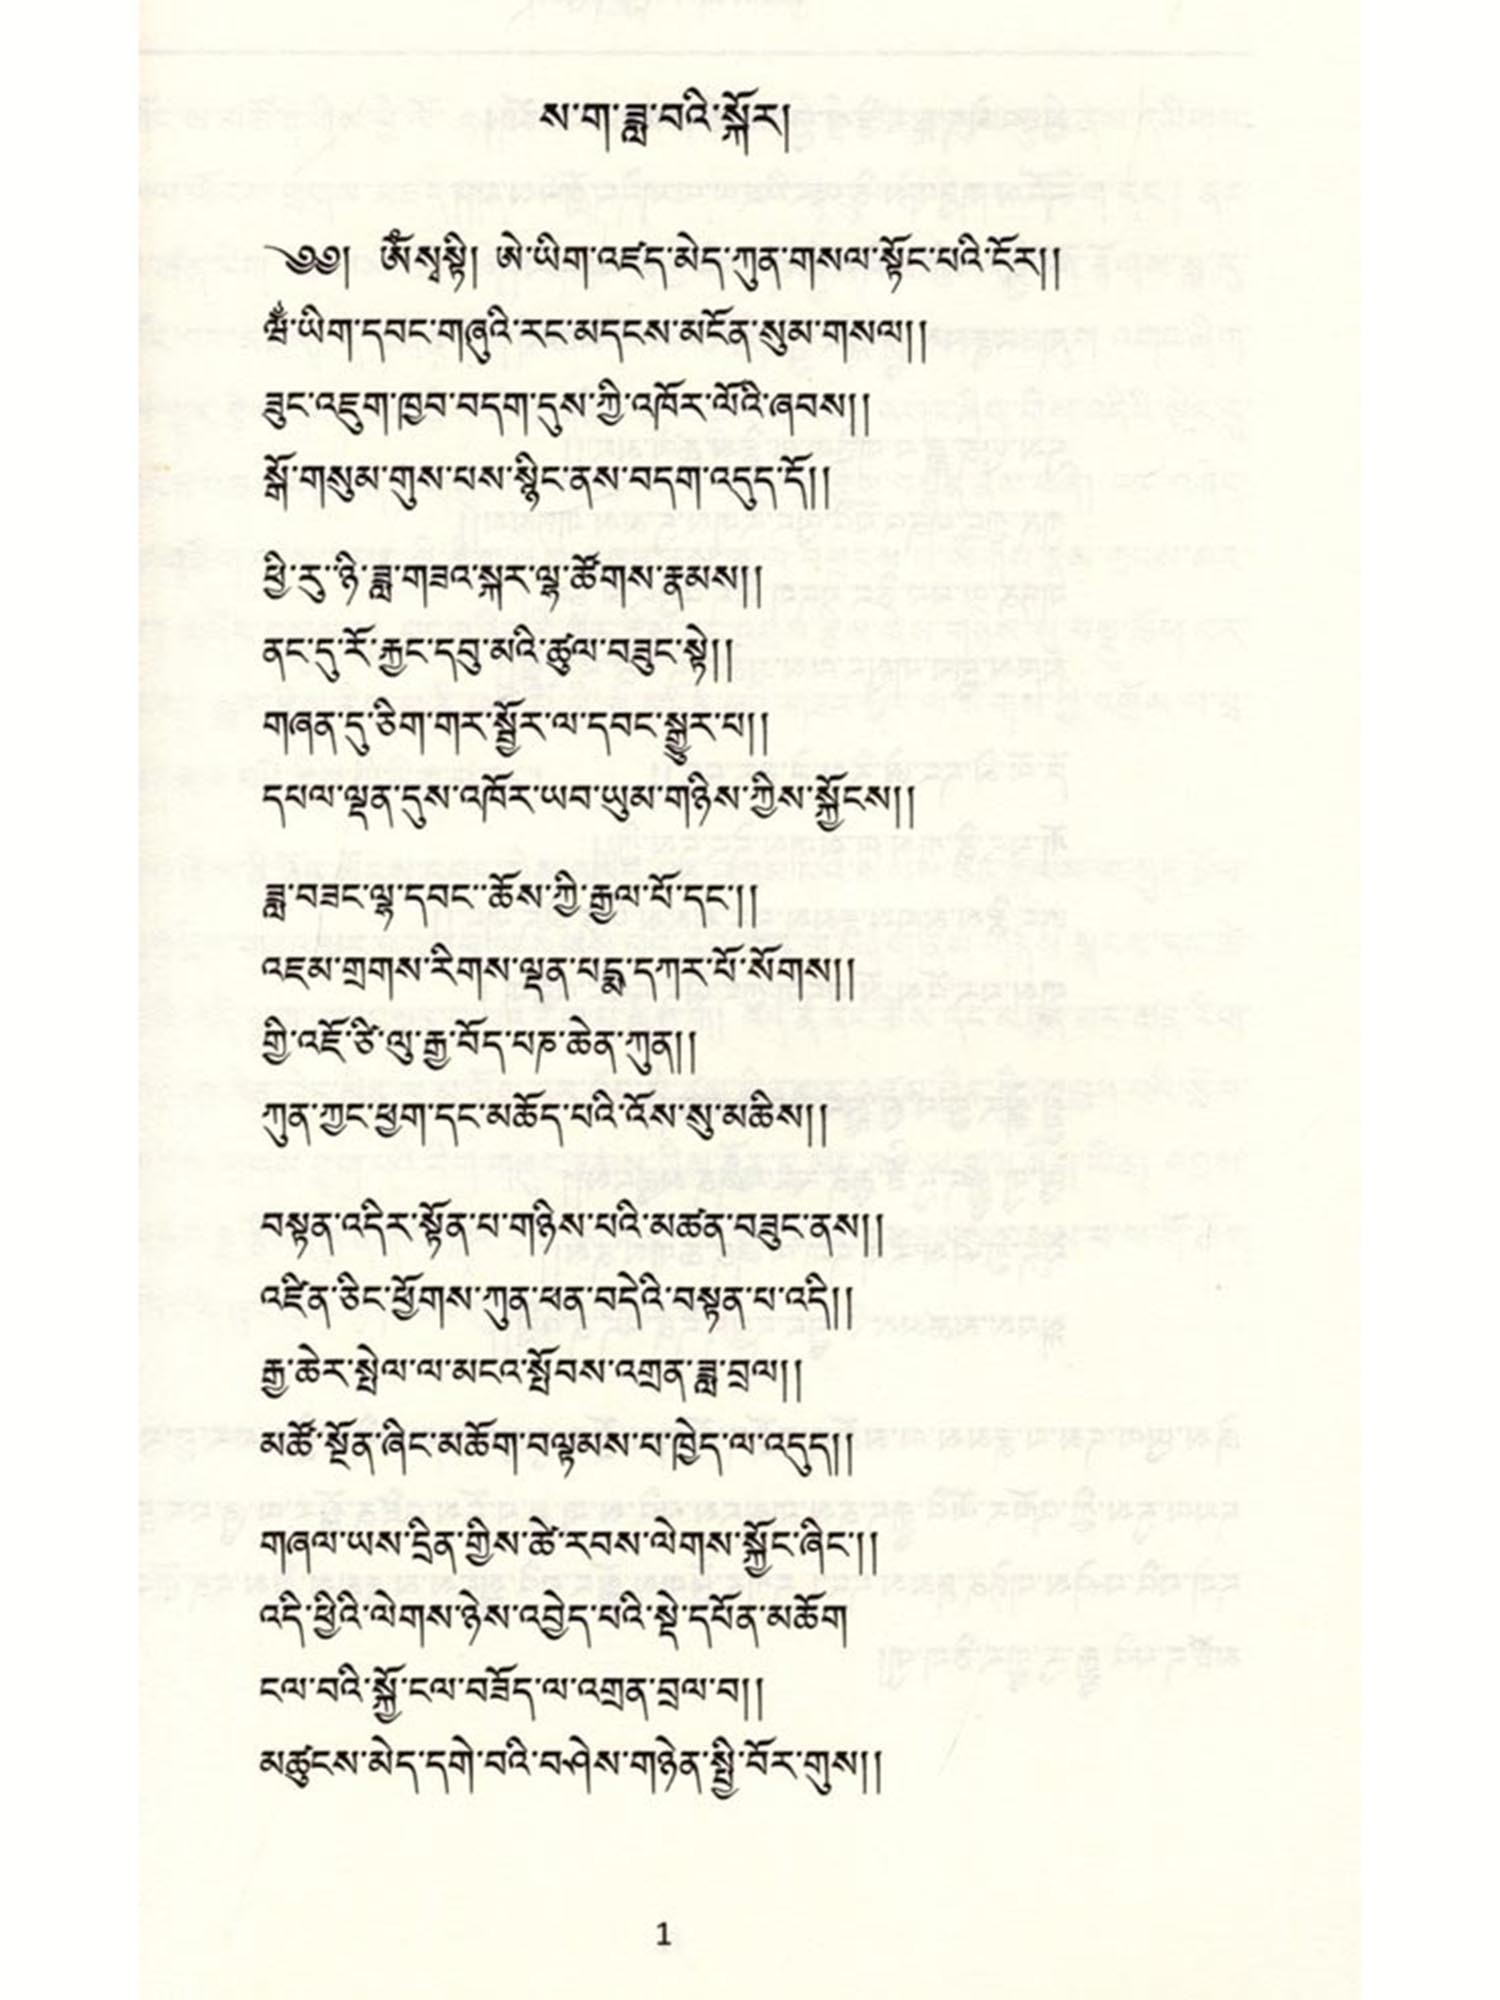 ས་ག་ཟླ་བའི་སྐོར།
༄༅། ཨོཾ་སྭསྟི། ཨེ་ཡིག་འཛད་མེད་ཀུན་གསལ་སྟོང་པའི་ངོར།།
ཝཾ་ཡིག་དབང་གཞུའི་རང་མདངས་མངོན་སུམ་གསལ།།
ཟུང་འཇུག་ཁྱབ་བདག་དུས་ཀྱི་འཁོར་ལོའི་ཞབས།།
སྒོ་གསུམ་གུས་པས་སྙིང་ནས་བདག་འདུད་དོ།།
ཕྱི་རུ་ཉི་ཟླ་གཟའ་སྐར་ལྷ་ཚོགས་རྣམས།།
ནང་དུ་རོ་རྐྱང་དབུ་མའི་ཚུལ་བཟུང་སྟེ།།
གཞན་དུ་ཅིག་གར་སྦྱོར་ལ་དབང་སྒྱུར་པ།།
དཔལ་ལྡན་དུས་འཁོར་ཡབ་ཡུམ་གཉིས་ཀྱིས་སྐྱོངས།།
ཟླ་བཟང་ལྷ་དབང་ཆོས་ཀྱི་རྒྱལ་པོ་དང་།།
འཇམ་གྲགས་རིགས་ལྡན་པདྨ་དཀར་པོ་སོགས།།
གྱི་འཇོ་ཙི་ལུ་རྒྱ་བོད་པཎ་ཆེན་ཀུན།།
ཀུན་ཀྱང་ཕྱག་དང་མཆོད་པའི་འོས་སུ་མཆིས།།
བསྟན་འདིར་སྟོན་པ་གཉིས་པའི་མཚན་བཟུང་ནས།།
འཛིན་ཅིང་ཕྱོགས་ཀུན་ཕན་བདེའི་བསྟན་པ་འདི།།
རྒྱ་ཆེར་སྤེལ་ལ་མངའ་སྤོབས་འགྲན་ཟླ་བྲལ།།
མཚོ་སྔོན་ཞིང་མཆོག་བལྟམས་པ་ཁྱེད་ལ་འདུད།།
གཞལ་ཡས་དྲིན་གྱིས་ཚེ་རབས་ལེགས་སྐྱོང་ཞིང་།།
འདི་ཕྱིའི་ལེགས་ཉེས་འབྱེད་པའི་སྡེ་དཔོན་མཆོག
ངལ་བའི་སྐྱོ་ངལ་བཟོད་ལ་འགྲན་བྲལ་བ།།
མཚུངས་མེད་དགེ་བའི་བཤེས་གཉེན་སྤྱི་བོར་གུས།།
1